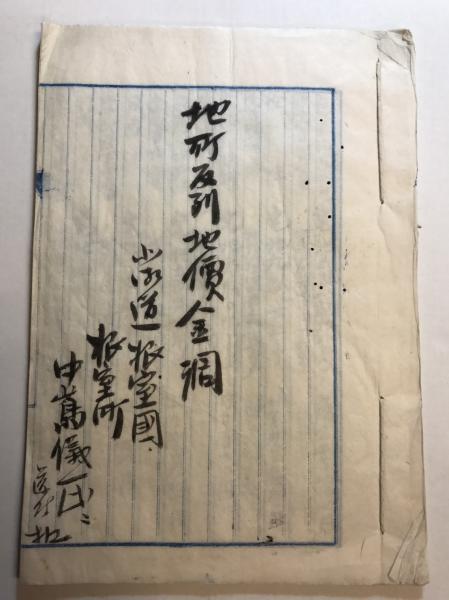 地所反別地價金調
北海道根室國
根室町
中萬儀一氏ニ
送ル扣